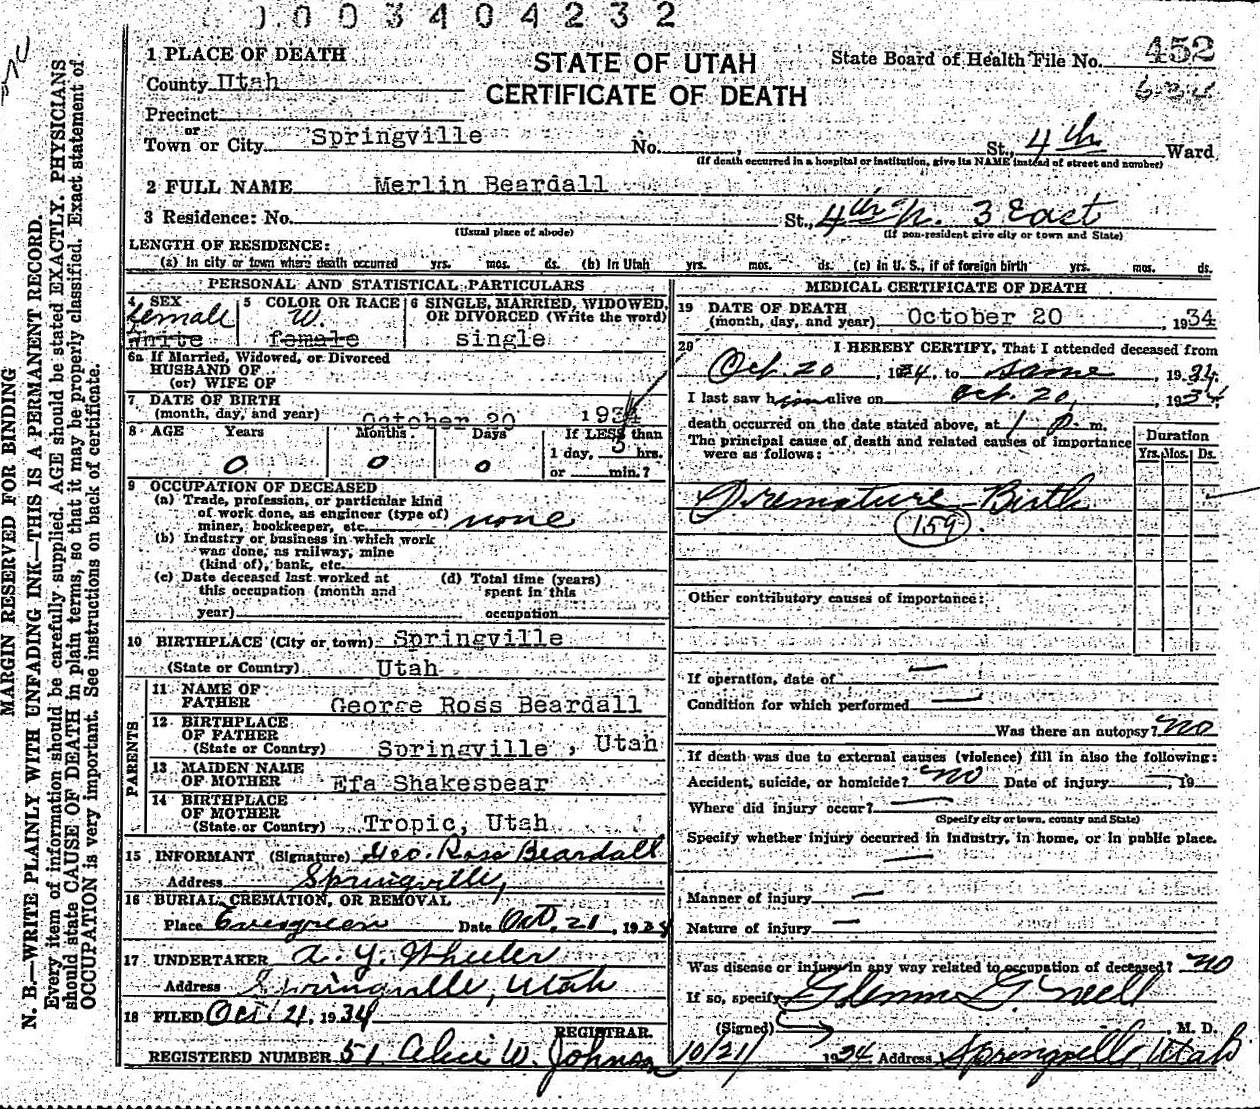 0003404232
1 PLACE OF DEATH
STATE OF UTAH
CERTIFICATE OF DEATH
State Board of Health File No. 452
634
County Utah
Precinct
or
Town or City Springville No. St., 4th Ward
(If death occurred in a hospital or institution, give its NAME instead of street and number)
2 FULL NAME Merlin Beardall
3 Residence: No. St., 4th N. 3 East
(Usual place of abode) (If non-resident give city or town and State)
LENGTH OF RESIDENCE:
(a) In city or town where death occurred yrs. mos. ds. (b) In Utah yrs. mos. ds. (c) in U. S., if of foreign birth yrs. mos. ds.
PERSONAL AND STATISTICAL PARTICULARS
4 SEX female White
5 COLOR OR RACE W. female
6 SINGLE, MARRIED, WIDOWED, OR DIVORCED (Write the word) single
6a If Married, Widowed, or Divorced
HUSBAND OF
(or) WIFE OF
7 DATE OF BIRTH
(month, day, and year) October 20 1934
8 AGE Years Months Days If LESS than
0 0 0 1 day, 5 hrs.
or min.?
9 OCCUPATION OF DECEASED
(a) Trade, profession, or particular kind
of work done, as engineer (type of)
miner, bookkeeper, etc. none
(b) Industry or business in which work
was done, as railway, mine
(kind of), bank, etc.
(c) Date deceased last worked at
this occupation (month and
year)
(d) Total time (years)
spent in this
occupation
10 BIRTHPLACE (City or town) Springville
(State or Country) Utah
PARENTS
11 NAME OF
FATHER George Ross Beardall
12 BIRTHPLACE
OF FATHER
(State or Country) Springville, Utah
13 MAIDEN NAME
OF MOTHER Efa Shakespear
14 BIRTHPLACE
OF MOTHER
(State or Country) Tropic, Utah
15 INFORMANT (Signature) Geo. Ross Beardall
Address Springville,
16 BURIAL, CREMATION, OR REMOVAL
Place Evergreen Date Oct. 21, 1934
17 UNDERTAKER A. Y. Wheeler
Address Springville, Utah
18 FILED Oct 21, 1934
REGISTRAR.
REGISTERED NUMBER 51 Alice W. Johnson
MEDICAL CERTIFICATE OF DEATH
19 DATE OF DEATH
(month, day, and year) October 20, 1934
20 I HEREBY CERTIFY, That I attended deceased from
Oct. 20, 1934, to same, 1934.
I last saw him alive on Oct. 20, 1934.
death occurred on the date stated above, at 1 P. m.
The principal cause of death and related causes of importance
were as follows:
Duration
Yrs. Mos. Ds.
Premature Birth
159
Other contributory causes of importance:
If operation, date of —
Condition for which performed —
Was there an autopsy? no
If death was due to external causes (violence) fill in also the following:
Accident, suicide, or homicide? no Date of injury — 19
Where did injury occur? —
(Specify city or town, county and State)
Specify whether injury occurred in industry, in home, or in public place.
—
Manner of injury —
Nature of injury —
Was disease or injury in any way related to occupation of deceased? no
If so, specify
(Signed) Glenn G. Neell, M. D.
10/21/ 1934 Address Springville, Utah
MARGIN RESERVED FOR BINDING
N. B.—WRITE PLAINLY WITH UNFADING INK—THIS IS A PERMANENT RECORD.
Every item of information should be carefully supplied. AGE should be stated EXACTLY. PHYSICIANS
should state CAUSE OF DEATH in plain terms, so that it may be properly classified. Exact statement of
OCCUPATION is very important. See instructions on back of certificate.